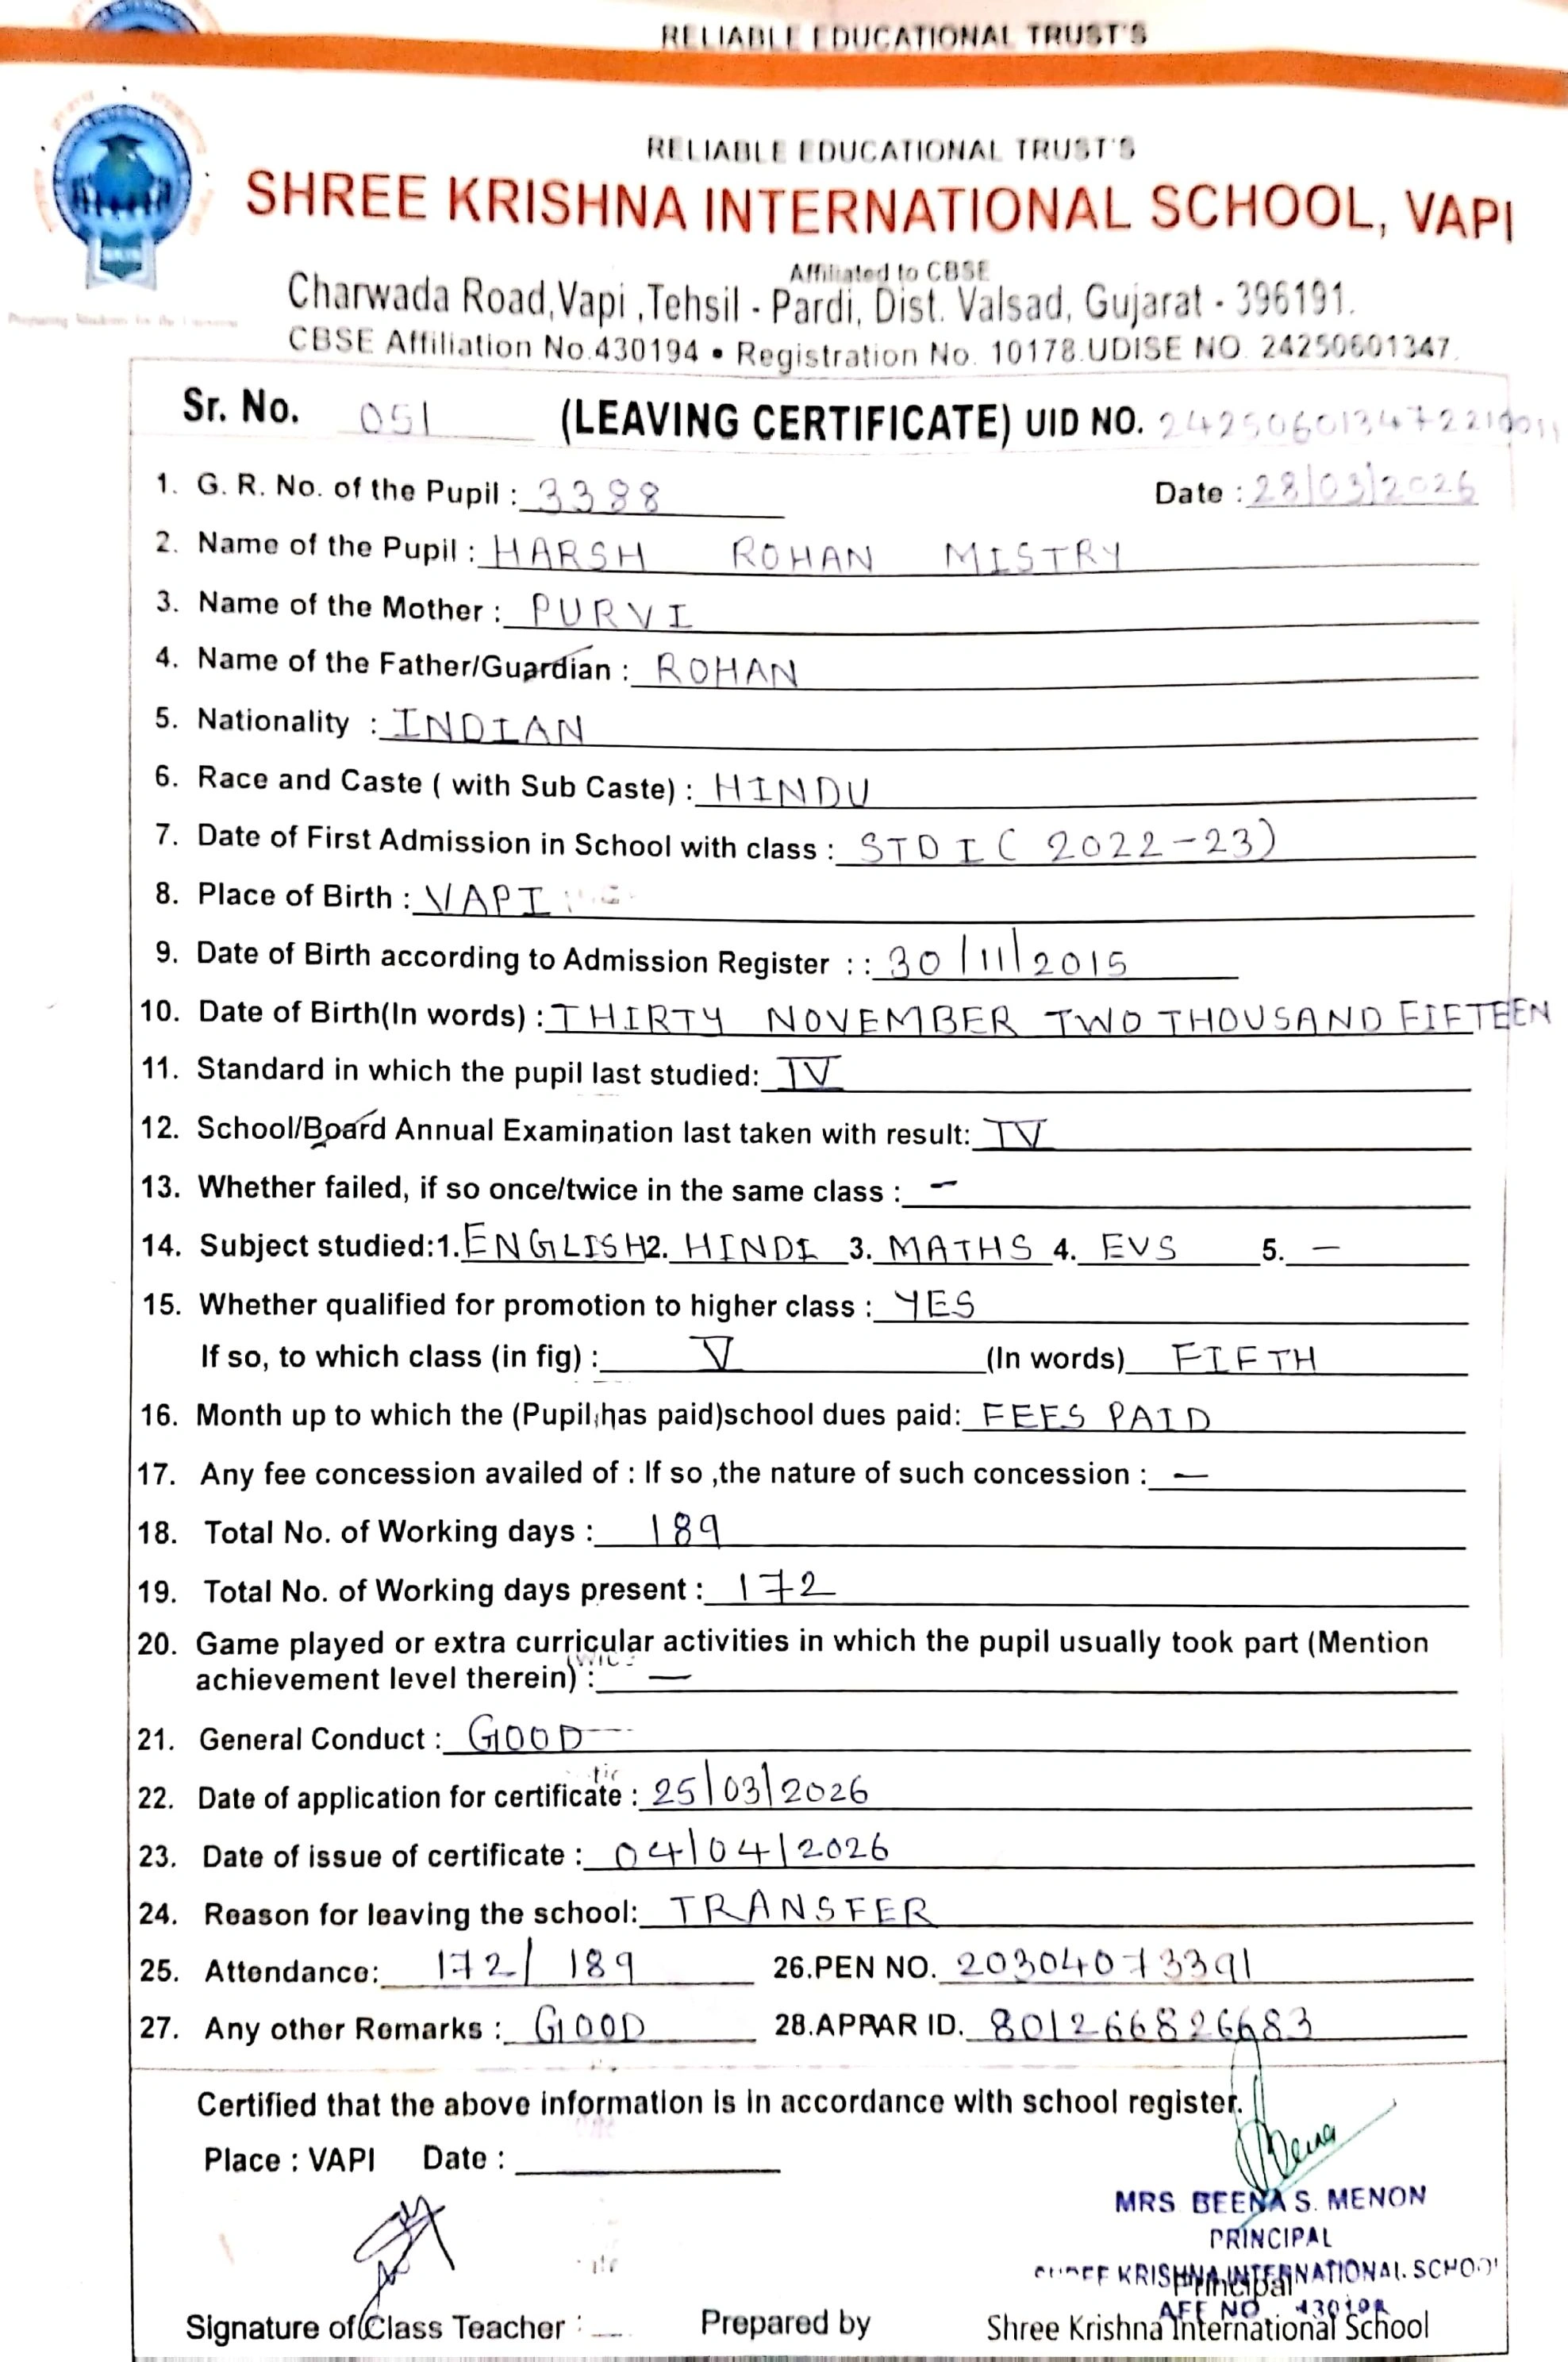 RELIABLE EDUCATIONAL TRUST'S
RELIABLE EDUCATIONAL TRUST'S
SHREE KRISHNA INTERNATIONAL SCHOOL, VAPI
Affiliated to CBSE
Charwada Road,Vapi ,Tehsil - Pardi, Dist. Valsad, Gujarat - 396191.
CBSE Affiliation No.430194 • Registration No. 10178.UDISE NO. 24250601347.
Sr. No. 051 (LEAVING CERTIFICATE) UID NO. 242506013472210011
1. G. R. No. of the Pupil : 3388 Date : 28/03/2026
2. Name of the Pupil : HARSH ROHAN MISTRY
3. Name of the Mother : PURVI
4. Name of the Father/Guardian : ROHAN
5. Nationality : INDIAN
6. Race and Caste ( with Sub Caste) : HINDU
7. Date of First Admission in School with class : STD I ( 2022-23)
8. Place of Birth : VAPI
9. Date of Birth according to Admission Register : : 30/11/2015
10. Date of Birth(In words) : THIRTY NOVEMBER TWO THOUSAND FIFTEEN
11. Standard in which the pupil last studied: IV
12. School/Board Annual Examination last taken with result: IV
13. Whether failed, if so once/twice in the same class : -
14. Subject studied:1. ENGLISH 2. HINDI 3. MATHS 4. EVS 5. -
15. Whether qualified for promotion to higher class : YES
If so, to which class (in fig) : V (In words) FIFTH
16. Month up to which the (Pupil has paid)school dues paid: FEES PAID
17. Any fee concession availed of : If so ,the nature of such concession : -
18. Total No. of Working days : 189
19. Total No. of Working days present : 172
20. Game played or extra curricular activities in which the pupil usually took part (Mention
achievement level therein) : -
21. General Conduct : GOOD
22. Date of application for certificate : 25/03/2026
23. Date of issue of certificate : 04/04/2026
24. Reason for leaving the school: TRANSFER
25. Attendance: 172/ 189 26.PEN NO. 20304073391
27. Any other Remarks : GOOD 28.APPAR ID. 801266826683
Certified that the above information is in accordance with school register.
Place : VAPI Date :
MRS BEENA S. MENON
PRINCIPAL
SHREE KRISHNA INTERNATIONAL SCHOOL
Principal
AFF NO 430194
Signature of Class Teacher : Prepared by Shree Krishna International School